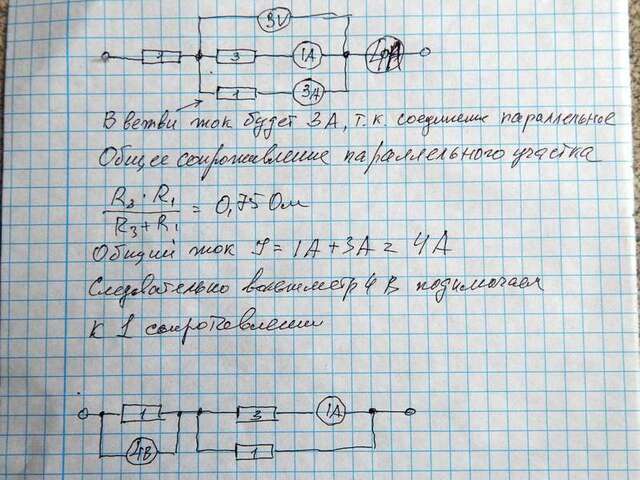 3V
1 3 1A 4A
1 3A
В ветви ток будет 3А, т.к соединение параллельное
Общее сопротивление параллельного участка
R3 · R1
R3 + R1 = 0,75 Ом
Общий ток I = 1А + 3А = 4А
Следовательно вольтметр 4 В подключаем
к 1 сопротивлению
1 3 1А
4В 1